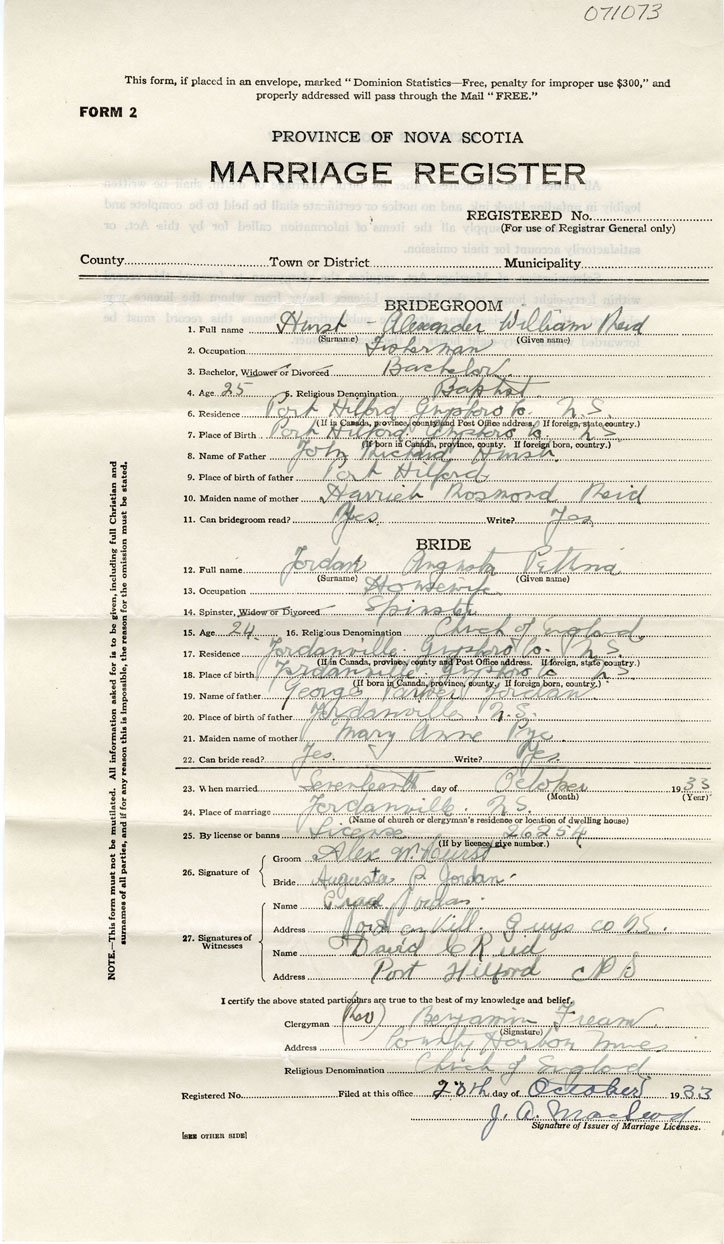 071073
This form, if placed in an envelope, marked "Dominion Statistics—Free, penalty for improper use $300," and
properly addressed will pass through the Mail "FREE."
FORM 2
PROVINCE OF NOVA SCOTIA
MARRIAGE REGISTER
REGISTERED No.
(For use of Registrar General only)
County Town or District Municipality
BRIDEGROOM
1. Full name Hurst - Alexander William Reid
(Surname) (Given name)
2. Occupation Fisherman
3. Bachelor, Widower or Divorced Bachelor
4. Age 25 5. Religious Denomination Baptist
6. Residence Port Hilford Guysboro Co. N.S.
(If in Canada, province, county and Post Office address. If foreign, state country.)
7. Place of Birth Port Hilford Guysboro Co NS
(If born in Canada, province, county. If foreign born, country.)
8. Name of Father John Richard Hurst
9. Place of birth of father Port Hilford
10. Maiden name of mother Harriet Rosmond Reid
11. Can bridegroom read? Yes Write? Yes
BRIDE
12. Full name Jordan Augusta
(Surname) (Given name)
13. Occupation Housewife
14. Spinster, Widow or Divorced Spinster
15. Age 24 16. Religious Denomination Church of England
17. Residence Jordanville Guysboro Co. N.S.
(If in Canada, province, county and Post Office address. If foreign, state country.)
18. Place of birth Jordanville Guysboro Co NS
(If born in Canada, province, county. If foreign born, country.)
19. Name of father George Jordan
20. Place of birth of father Jordanville, N.S.
21. Maiden name of mother Mary Anne Pye
22. Can bride read? Yes. Write? Yes.
23. When married Seventeenth day of October 1933
(Month) (Year)
24. Place of marriage Jordanville. N.S.
(Name of church or clergyman's residence or location of dwelling house)
25. By license or banns License 26254
(If by licence, give number.)
26. Signature of
Groom Alex W Hurst
Bride Augusta P Jordan
27. Signatures of Witnesses
Name Jordan
Address Jordanvill. Guys co NS.
Name David C Reid
Address Port Hilford NS
I certify the above stated particulars are true to the best of my knowledge and belief.
Clergyman (Rev) Benjamin Fream
(Signature)
Address Harbour Mines
Religious Denomination Church of England
Registered No. Filed at this office 20th day of October 1933
J. A. Macleod
Signature of Issuer of Marriage Licenses.
[SEE OTHER SIDE]
NOTE.—This form must not be mutilated. All information asked for is to be given, including full Christian and
surnames of all parties, and if for any reason this is impossible, the reason for the omission must be stated.